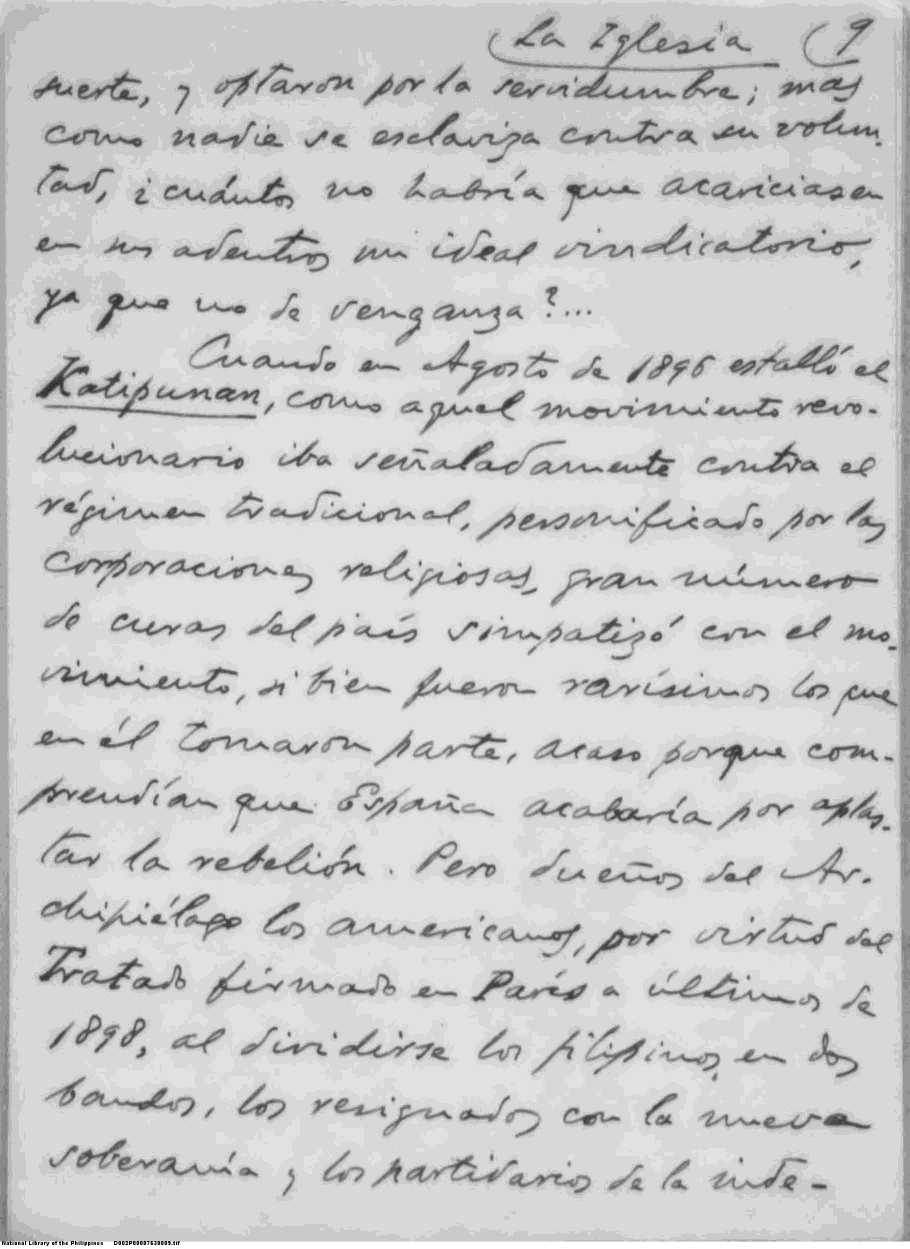 La Iglesia (9
suerte, y optaron por la servidumbre; mas
como nadie se esclaviza contra su volun-
tad, ¿cuántos no habría que acariciasen
en sus adentros un ideal vindicatorio,
ya que no de venganza?...
Cuando en Agosto de 1896 estalló el
Katipunan, como aquel movimiento revo-
lucionario iba señaladamente contra el
régimen tradicional, personificado por las
corporaciones religiosas, gran número
de curas del país simpatizó con el mo-
vimiento, si bien fueron rarísimos los que
en él tomaron parte, acaso porque com-
prendían que España acabaría por aplas-
tar la rebelión. Pero dueños del Ar-
chipiélago los americanos, por virtud del
Tratado firmado en París a últimos de
1898, al dividirse los filipinos en dos
bandos, los resignados con la nueva
soberanía y los partidarios de la inde-
National Library of the Philippines D002P00007630009.tif